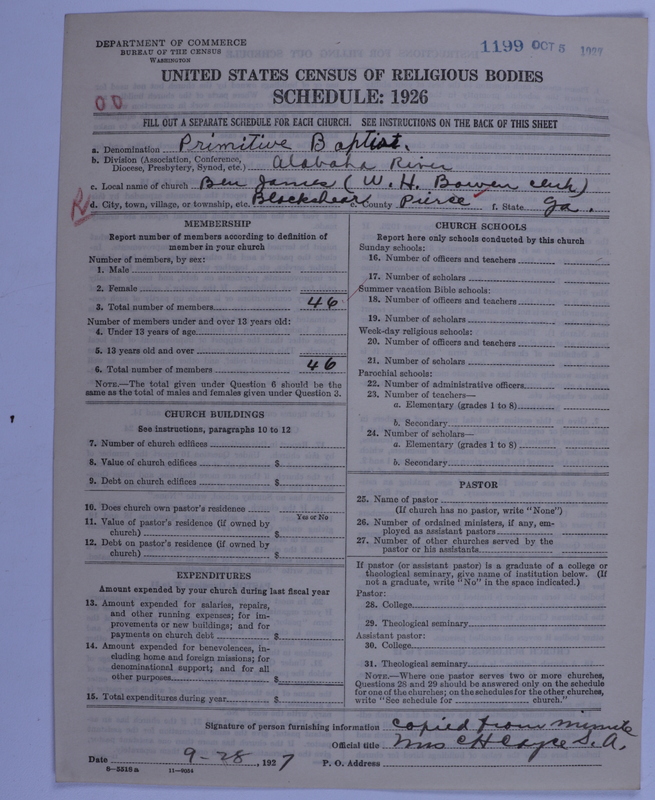 DEPARTMENT OF COMMERCE
BUREAU OF THE CENSUS
WASHINGTON
1199 OCT 5 1927
UNITED STATES CENSUS OF RELIGIOUS BODIES
SCHEDULE: 1926
FILL OUT A SEPARATE SCHEDULE FOR EACH CHURCH. SEE INSTRUCTIONS ON THE BACK OF THIS SHEET
a. Denomination Primitive Baptist.
b. Division (Association, Conference, Diocese, Presbytery, Synod, etc.) Alabaha River
c. Local name of church Ben James (W. H. Bowen clerk)
R d. City, town, village, or township, etc. Blackshear e. County Pierce f. State Ga.
MEMBERSHIP
Report number of members according to definition of
member in your church
Number of members, by sex:
1. Male
2. Female
3. Total number of members 46
Number of members under and over 13 years old:
4. Under 13 years of age
5. 13 years old and over
6. Total number of members 46
NOTE.—The total given under Question 6 should be the
same as the total of males and females given under Question 3.
CHURCH BUILDINGS
See instructions, paragraphs 10 to 12
7. Number of church edifices
8. Value of church edifices $
9. Debt on church edifices $
10. Does church own pastor's residence
Yes or No
11. Value of pastor's residence (if owned by
church) $
12. Debt on pastor's residence (if owned by
church) $
EXPENDITURES
Amount expended by your church during last fiscal year
13. Amount expended for salaries, repairs,
and other running expenses; for im-
provements or new buildings; and for
payments on church debt $
14. Amount expended for benevolences, in-
cluding home and foreign missions; for
denominational support; and for all
other purposes $
15. Total expenditures during year $
CHURCH SCHOOLS
Report here only schools conducted by this church
Sunday schools:
16. Number of officers and teachers
17. Number of scholars
Summer vacation Bible schools:
18. Number of officers and teachers
19. Number of scholars
Week-day religious schools:
20. Number of officers and teachers
21. Number of scholars
Parochial schools:
22. Number of administrative officers
23. Number of teachers—
a. Elementary (grades 1 to 8)
b. Secondary
24. Number of scholars—
a. Elementary (grades 1 to 8)
b. Secondary
PASTOR
25. Name of pastor
(If church has no pastor, write "None")
26. Number of ordained ministers, if any, em-
ployed as assistant pastors
27. Number of other churches served by the
pastor or his assistants
If pastor (or assistant pastor) is a graduate of a college or
theological seminary, give name of institution below. (If
not a graduate, write "No" in the space indicated.)
Pastor:
28. College
29. Theological seminary
Assistant pastor:
30. College
31. Theological seminary
NOTE.—Where one pastor serves two or more churches,
Questions 28 and 29 should be answered only on the schedule
for one of the churches; on the schedules for the other churches,
write "See schedule for church."
Signature of person furnishing information copied from minute
Official title Mrs C H Cayce S. A.
Date 9-28, 1927 P. O. Address
8-5518a 11-9034